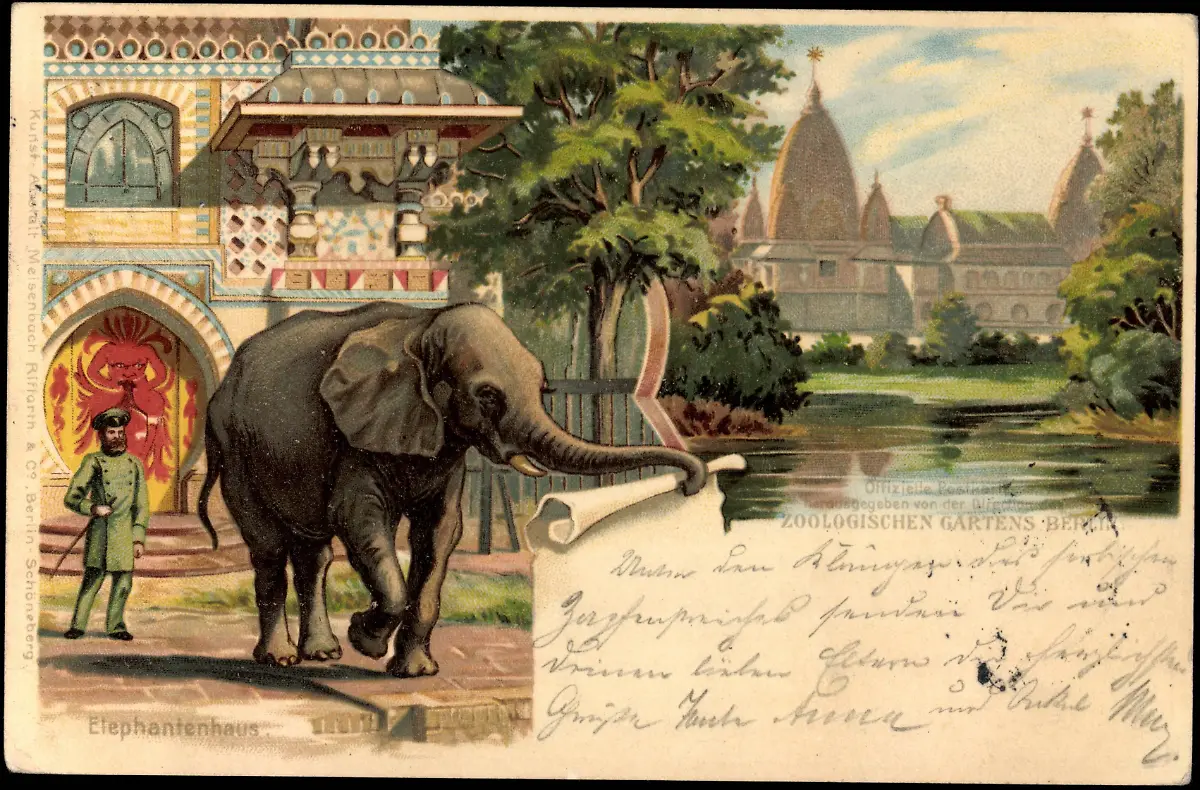 Kunst-Anstalt Meisenbach Riffarth & Co, Berlin-Schöneberg
Elephantenhaus.
Offizielle Postkarte
herausgegeben von der Direktion
ZOOLOGISCHEN GARTENS BERLIN
Unter den Klängen des serbischen
Zapfenstreiches senden Dir und
deinen lieben Eltern die herzlichsten
Grüße Tante Anna und Onkel Max.